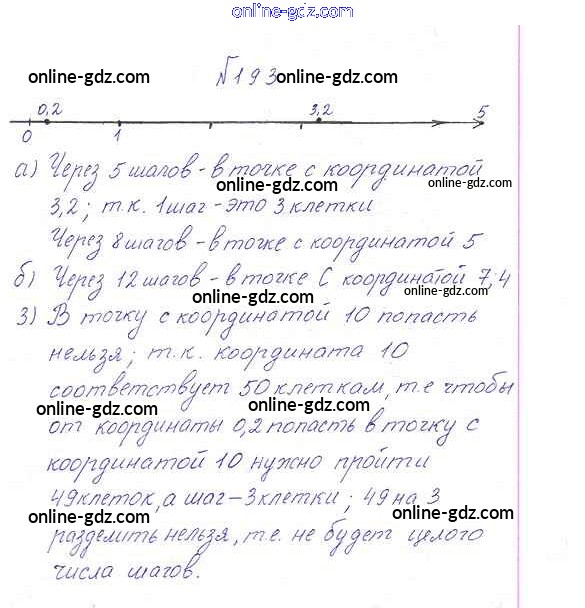 online-gdz.com
№193
online-gdz.com online-gdz.com
0,2 3,2 5
0 1
а) Через 5 шагов - в точке с координатой
online-gdz.com
3,2; т.к. 1 шаг - это 3 клетки
Через 8 шагов - в точке с координатой 5
б) Через 12 шагов - в точке С координатой 7,4
online-gdz.com online-gdz.com
3) В точку с координатой 10 попасть
нельзя; т.к. координата 10
соответствует 50 клеткам, т.е чтобы
online-gdz.com online-gdz.com
от координаты 0,2 попасть в точку с
координатой 10 нужно пройти
49 клеток, а шаг - 3 клетки; 49 на 3
online-gdz.com online-gdz.com
разделить нельзя, т.е. не будет целого
числа шагов.